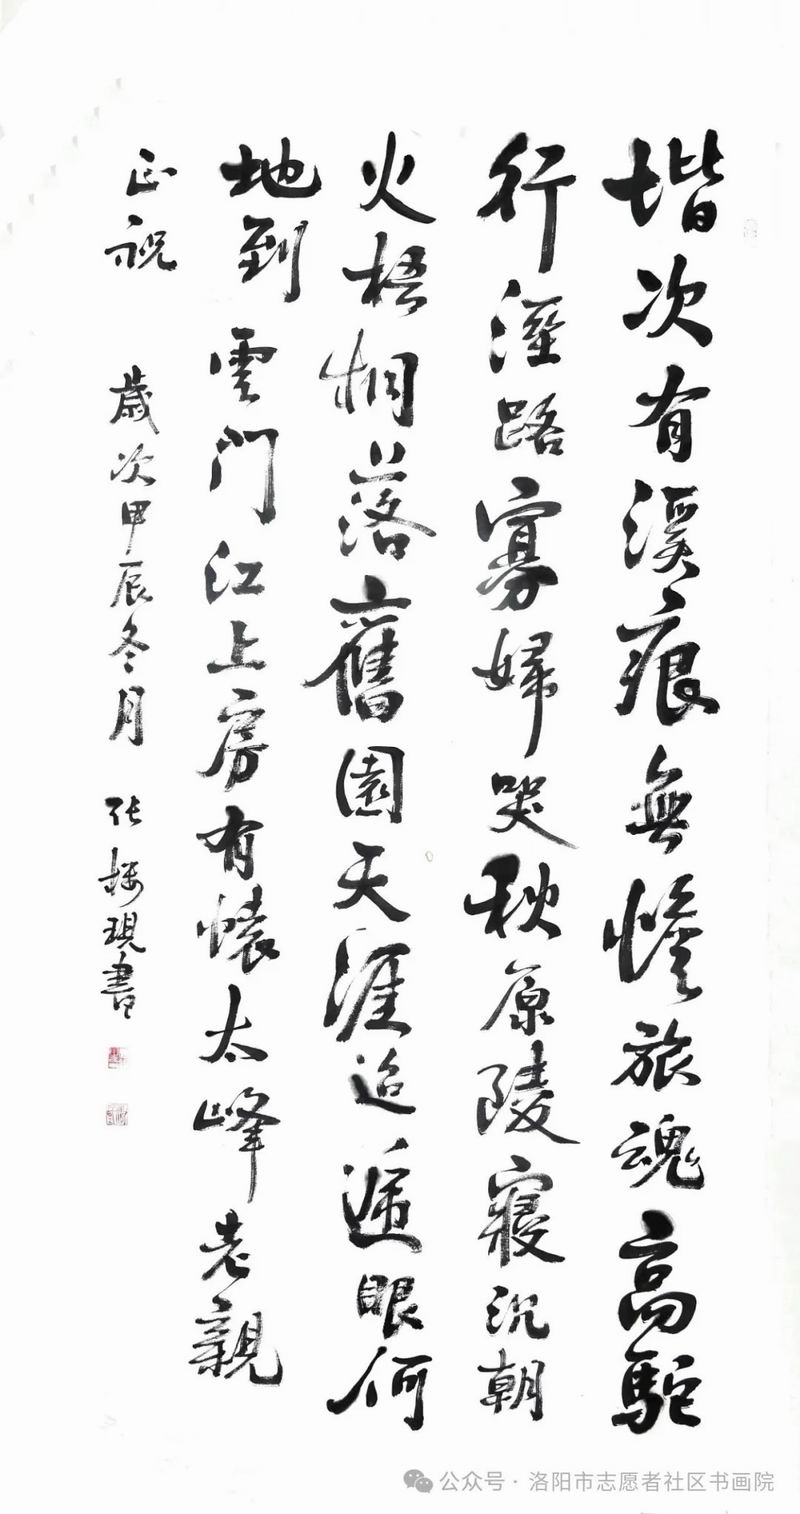 堦次有溪痕無憺旅魂高駝
行溼路寡婦哭秋原陵寢沉朝
火梧桐落舊園天涯迢遞眼何
地到雲門江上房有懷太峰老親
正祝
歲次甲辰冬月 张 現書
公众号·洛阳市志愿者社区书画院